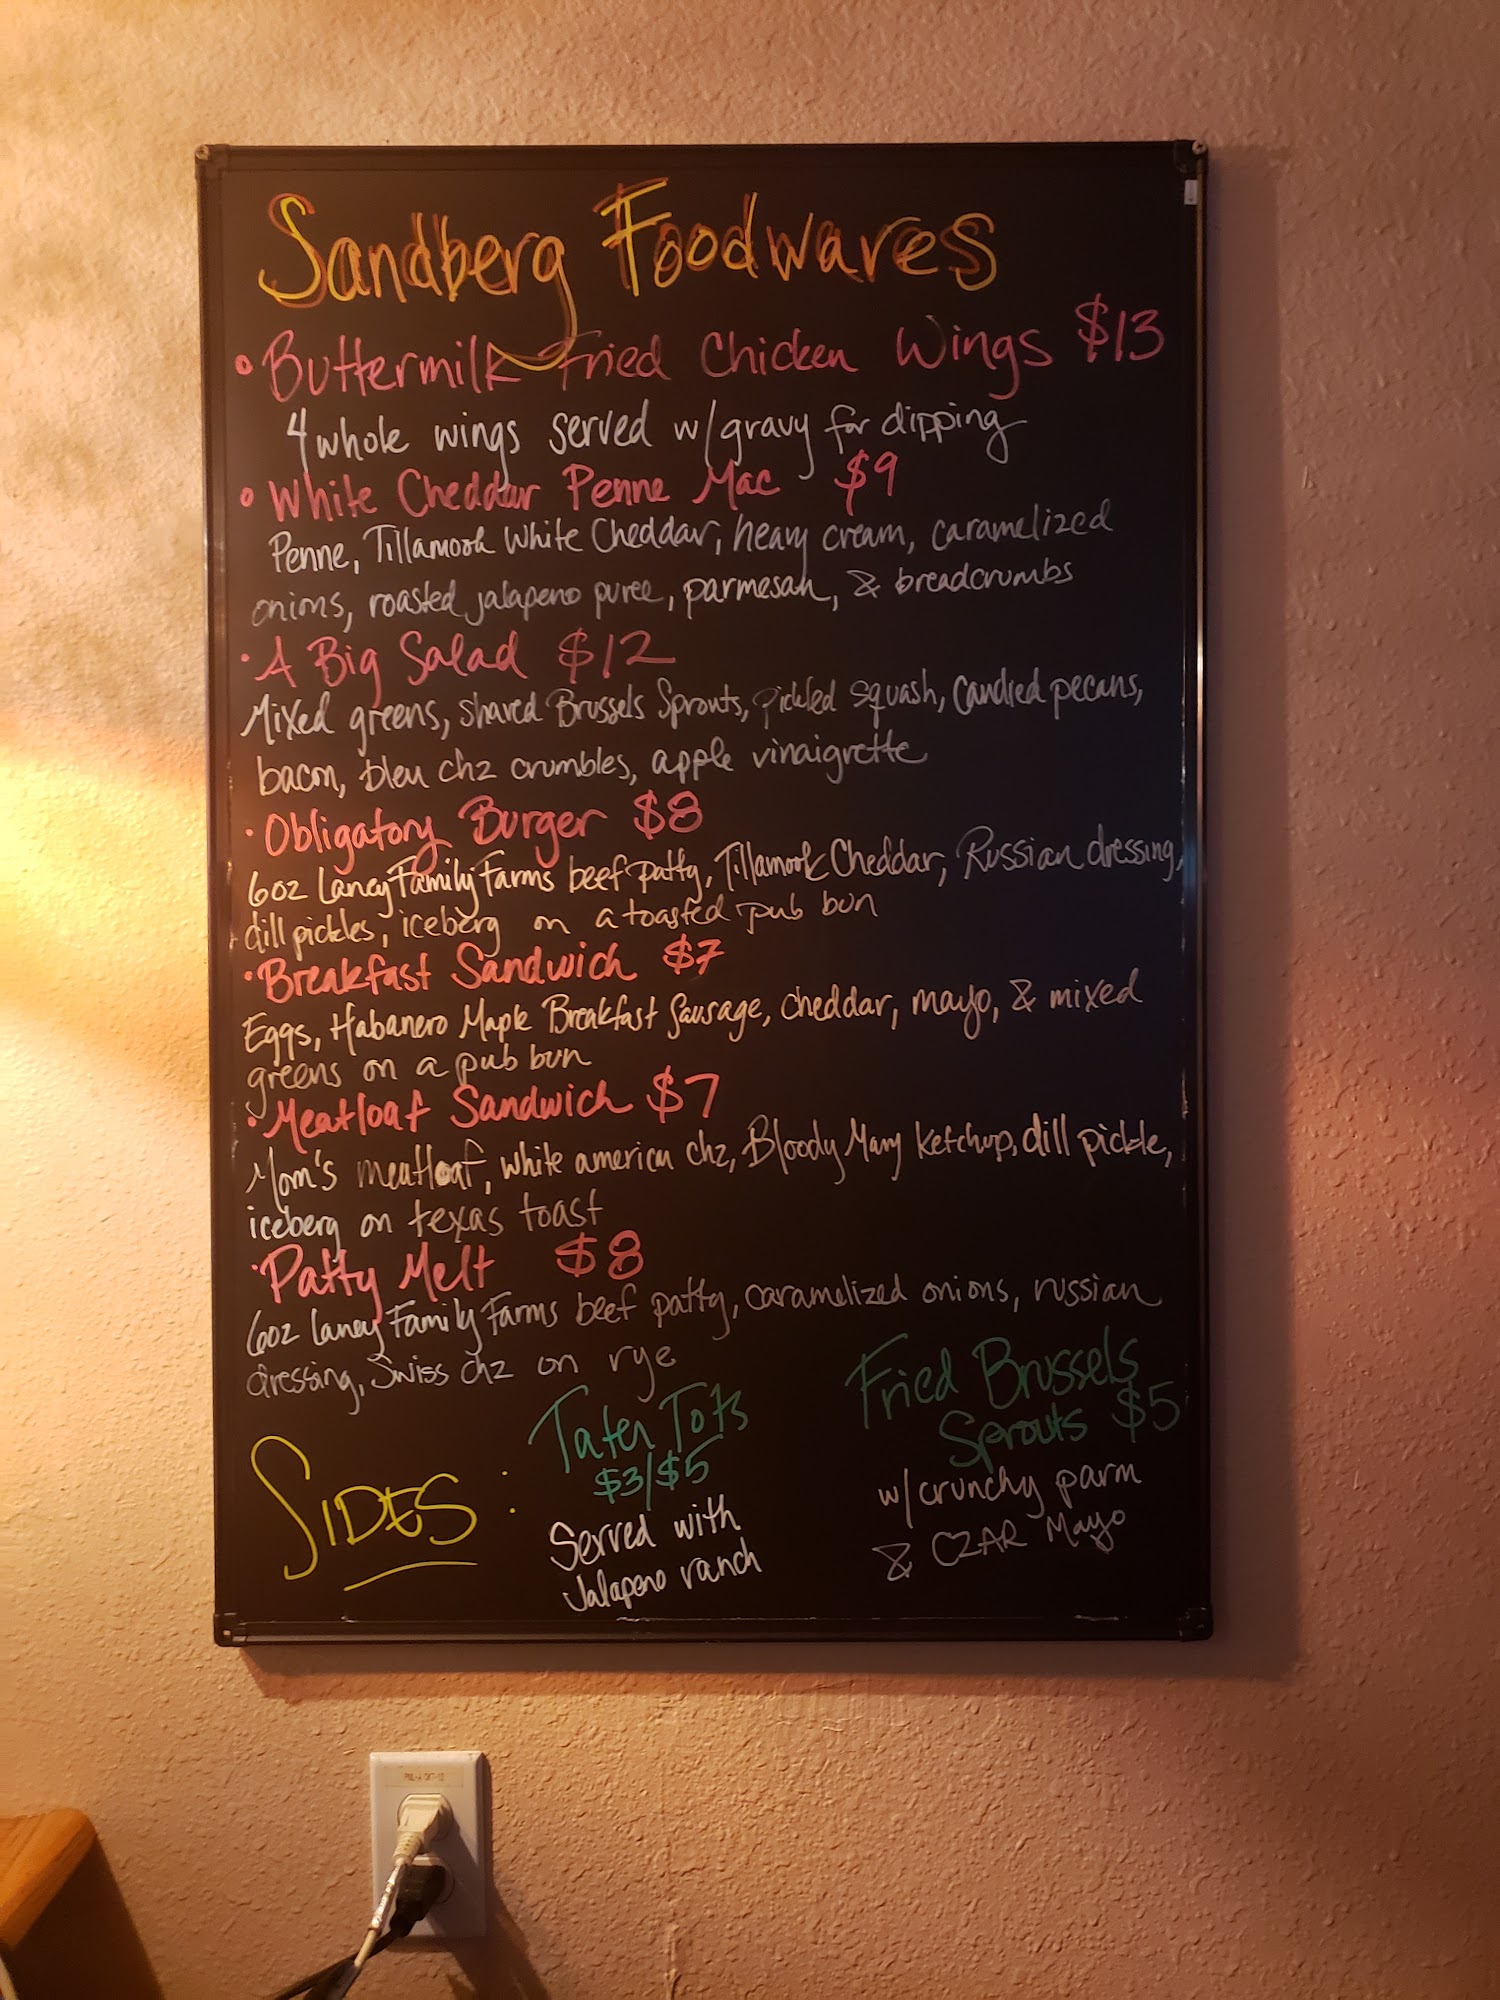 Sandberg Foodwares
• Buttermilk Fried Chicken Wings $13
4 whole wings served w/gravy for dipping
• White Cheddar Penne Mac $9
Penne, Tillamook White Cheddar, heavy cream, caramelized
onions, roasted jalapeno puree, parmesan, & breadcrumbs
• A Big Salad $12
Mixed greens, shaved Brussels Sprouts, pickled squash, candied pecans,
bacon, bleu chz crumbles, apple vinaigrette
• Obligatory Burger $8
6oz Laney Family Farms beef patty, Tillamook Cheddar, Russian dressing,
dill pickles, iceberg on a toasted pub bun
• Breakfast Sandwich $7
Eggs, Habanero Maple Breakfast Sausage, cheddar, mayo, & mixed
greens on a pub bun
• Meatloaf Sandwich $7
Mom's meatloaf, white american chz, Bloody Mary ketchup, dill pickle,
iceberg on texas toast
• Patty Melt $8
6oz Laney Family Farms beef patty, caramelized onions, russian
dressing, Swiss chz on rye
SIDES:
Tater Tots
$3/$5
Served with
Jalapeno ranch
Fried Brussels
Sprouts $5
w/crunchy parm
& CZAR Mayo